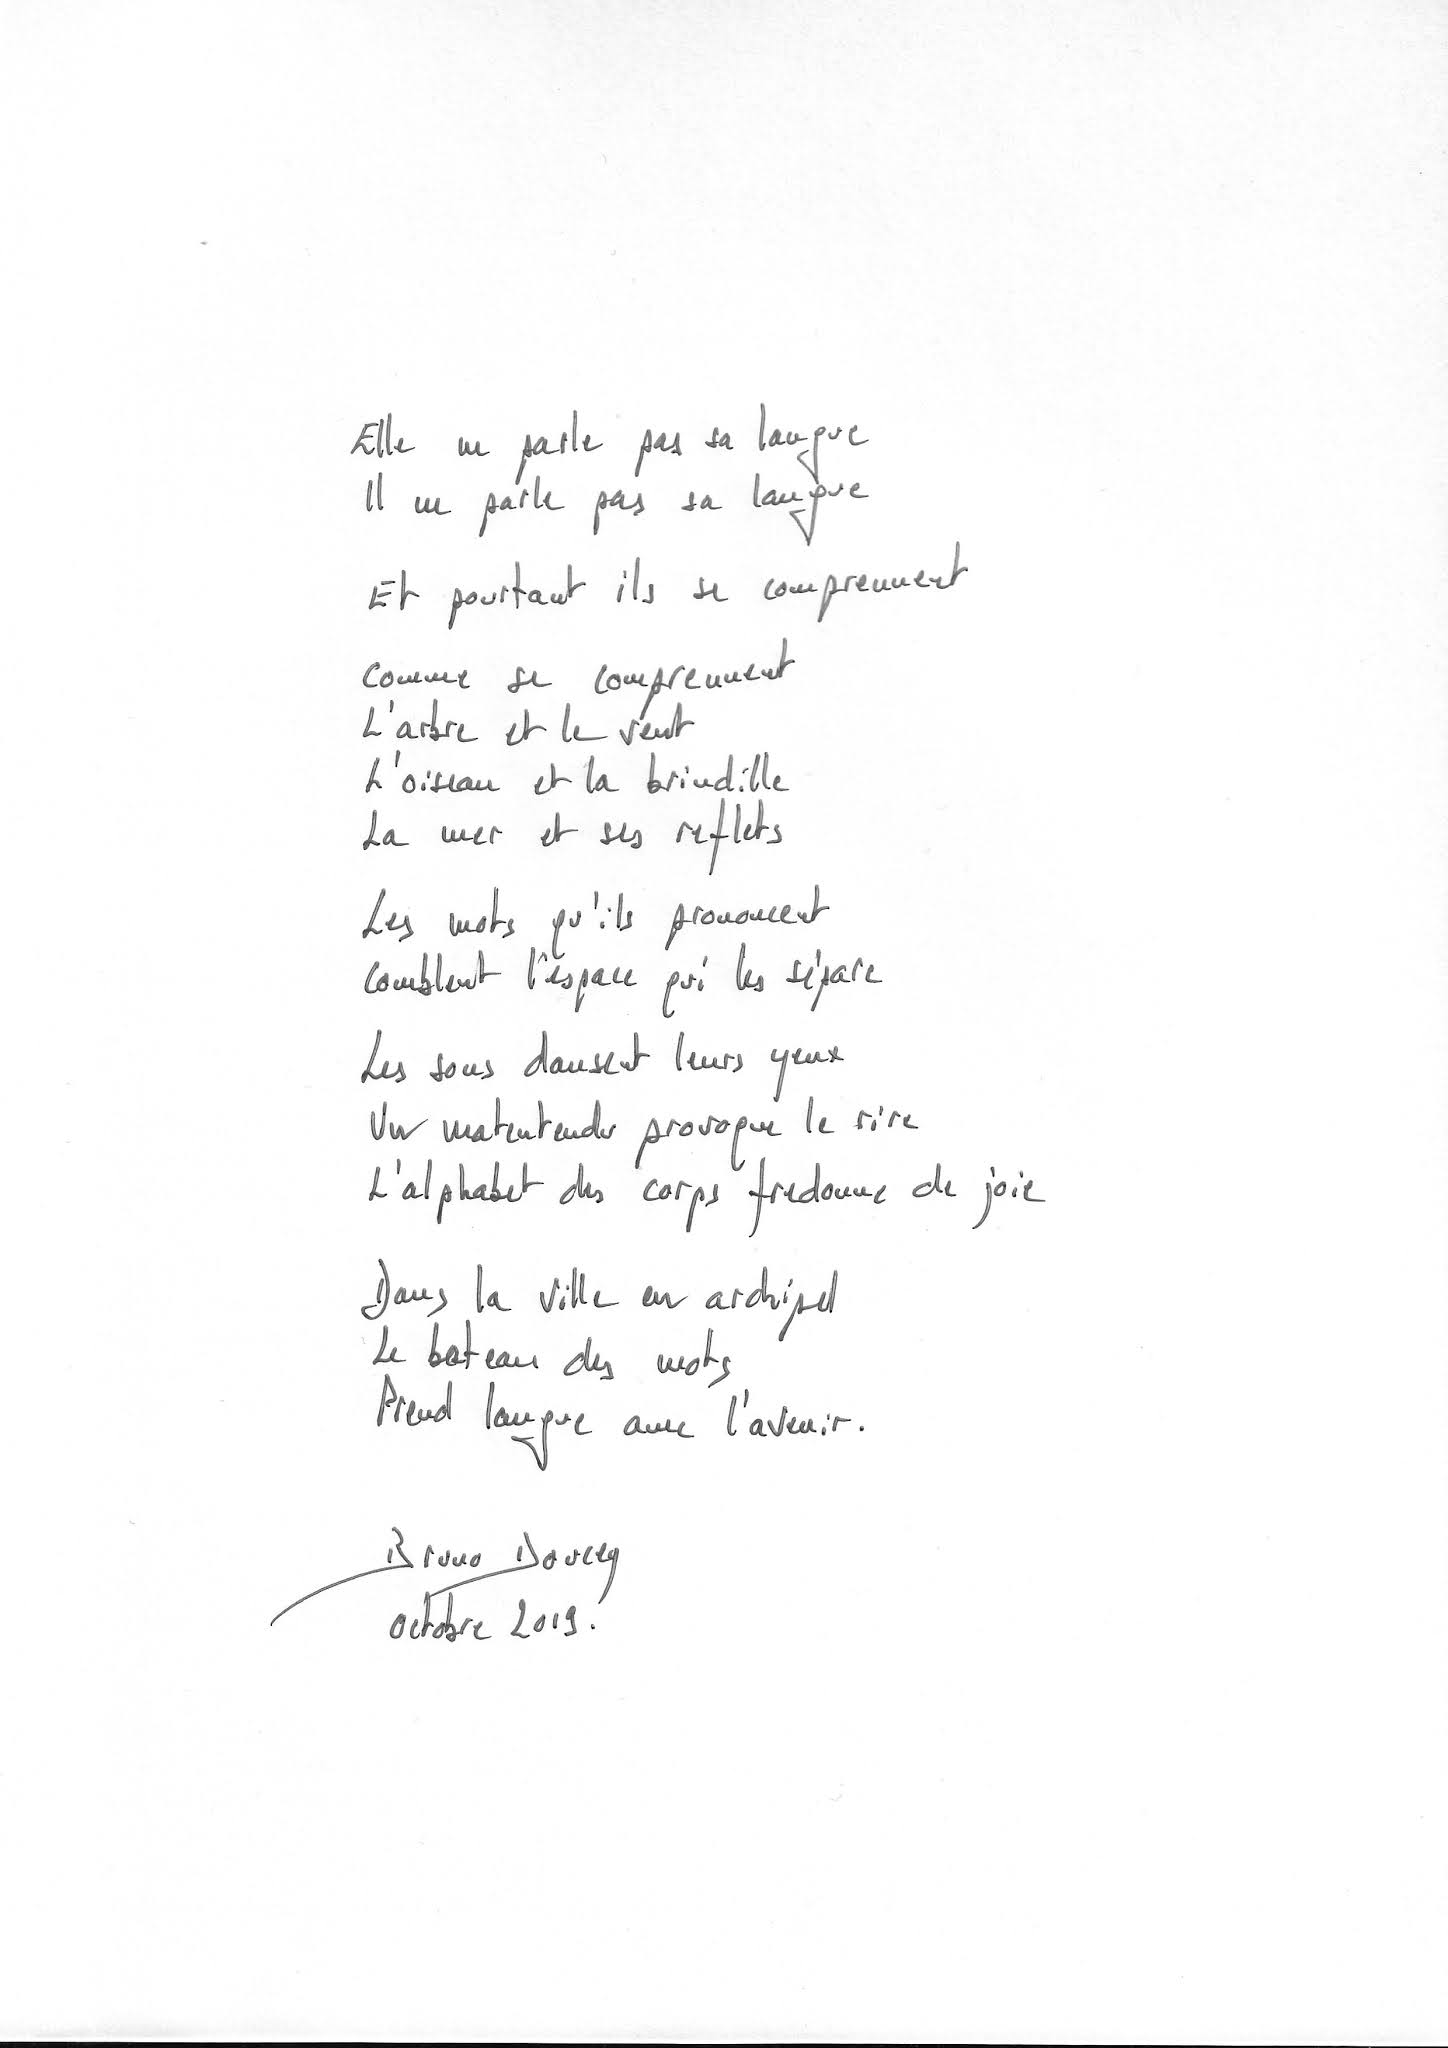 Elle ne parle pas sa langue
Il ne parle pas sa langue
Et pourtant ils se comprennent
Comme se comprennent
L'arbre et le vent
L'oiseau et la brindille
La mer et ses reflets
Les mots qu'ils prononcent
Comblent l'espace qui les sépare
Les sons dansent leurs yeux
Un malentendu provoque le rire
L'alphabet des corps fredonne de joie
Dans la ville en archipel
Le bateau des mots
Prend langue avec l'avenir.
Bruno Doucey
Octobre 2019.